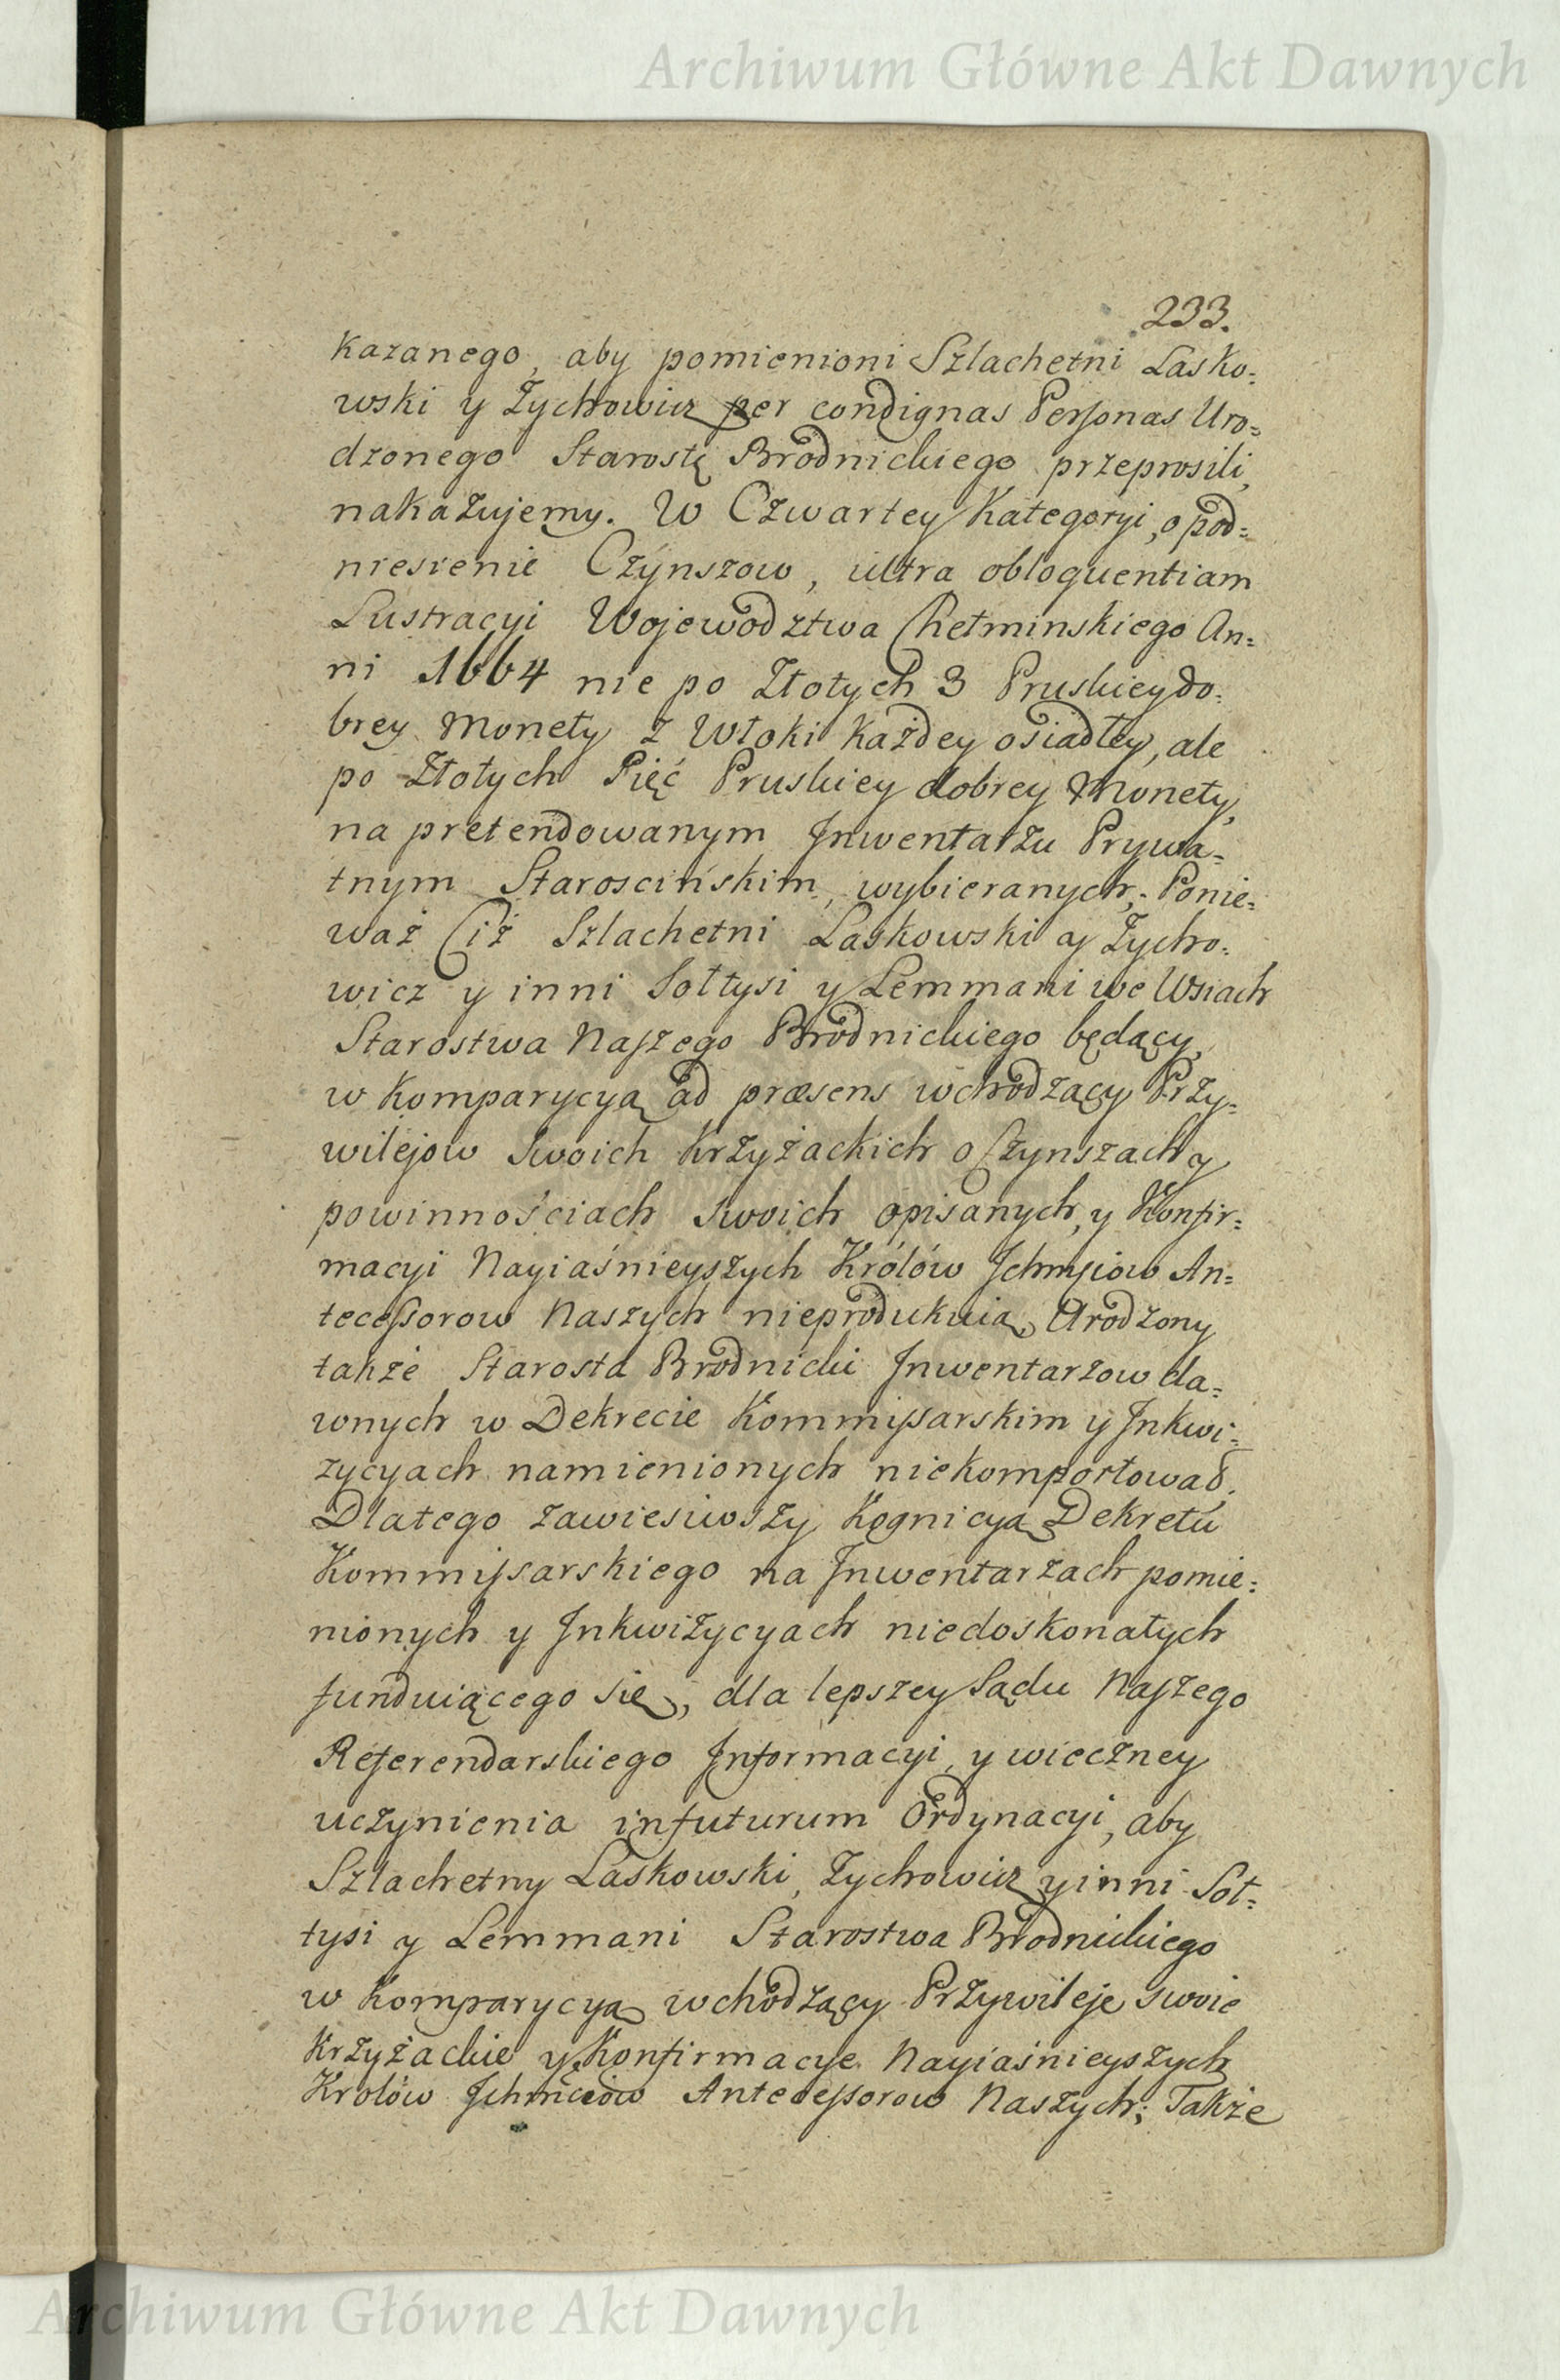 Archiwum Główne Akt Dawnych
233.
kazanego, aby pomienioni Szlachetni Lasko=
wski y Zychowicz per condignas Personas Uro=
dzonego Starostę Brodnickiego przeprosili,
nakazujemy. W Czwartey Kategoryi, o pod=
niesienie Czynszow, ultra obloquentiam
Lustracyi Wojewodztwa Chełminskiego An=
ni 1664 nie po Złotych 3 Pruskiey do=
brey Monety z Włoki każdey osiadłey, ale
po Złotych Pięć Pruskiey dobrey Monety,
na pretendowanym Inwentarzu Prywa=
tnym Starościńskim, wybieranych; Ponie=
waż Ciż Szlachetni Laskowski y Zycho=
wicz y inni Sołtysi y Lemmani we Wsiach
Starostwa Naszego Brodnickiego będący,
w komparycyą ad præsens wchodzący Przy=
wilejow swoich krzyżackich o Czynszach y
powinnościach swoich opisanych, y Konfir=
macyi Nayiaśnieyszych Królów Ichmciow An=
tecessorow Naszych nieprodukuią, Urodzony
także Starosta Brodnicki Inwentarzow da=
wnych w Dekrecie Kommissarskim y Inkwi=
zycyach namienionych niekomportował,
Dlatego zawiesiwszy Kognicyą Dekretu
Kommissarskiego na Inwentarzach pomie=
nionych y Inkwizycyach niedoskonałych
funduiącego się, dla lepszey Sądu Naszego
Referendarskiego Informacyi, y wieczney
uczynienia infuturum Ordynacyi, aby
Szlachetny Laskowski, Zychowicz y inni Soł=
tysi y Lemmani Starostwa Brodnickiego
w Komparycyą wchodzący Przywileje swoie
Krzyżackie y Konfirmacye Nayiaśnieyszych
Krolów Ichmciów Antecessorow Naszych; Także
Archiwum Główne Akt Dawnych